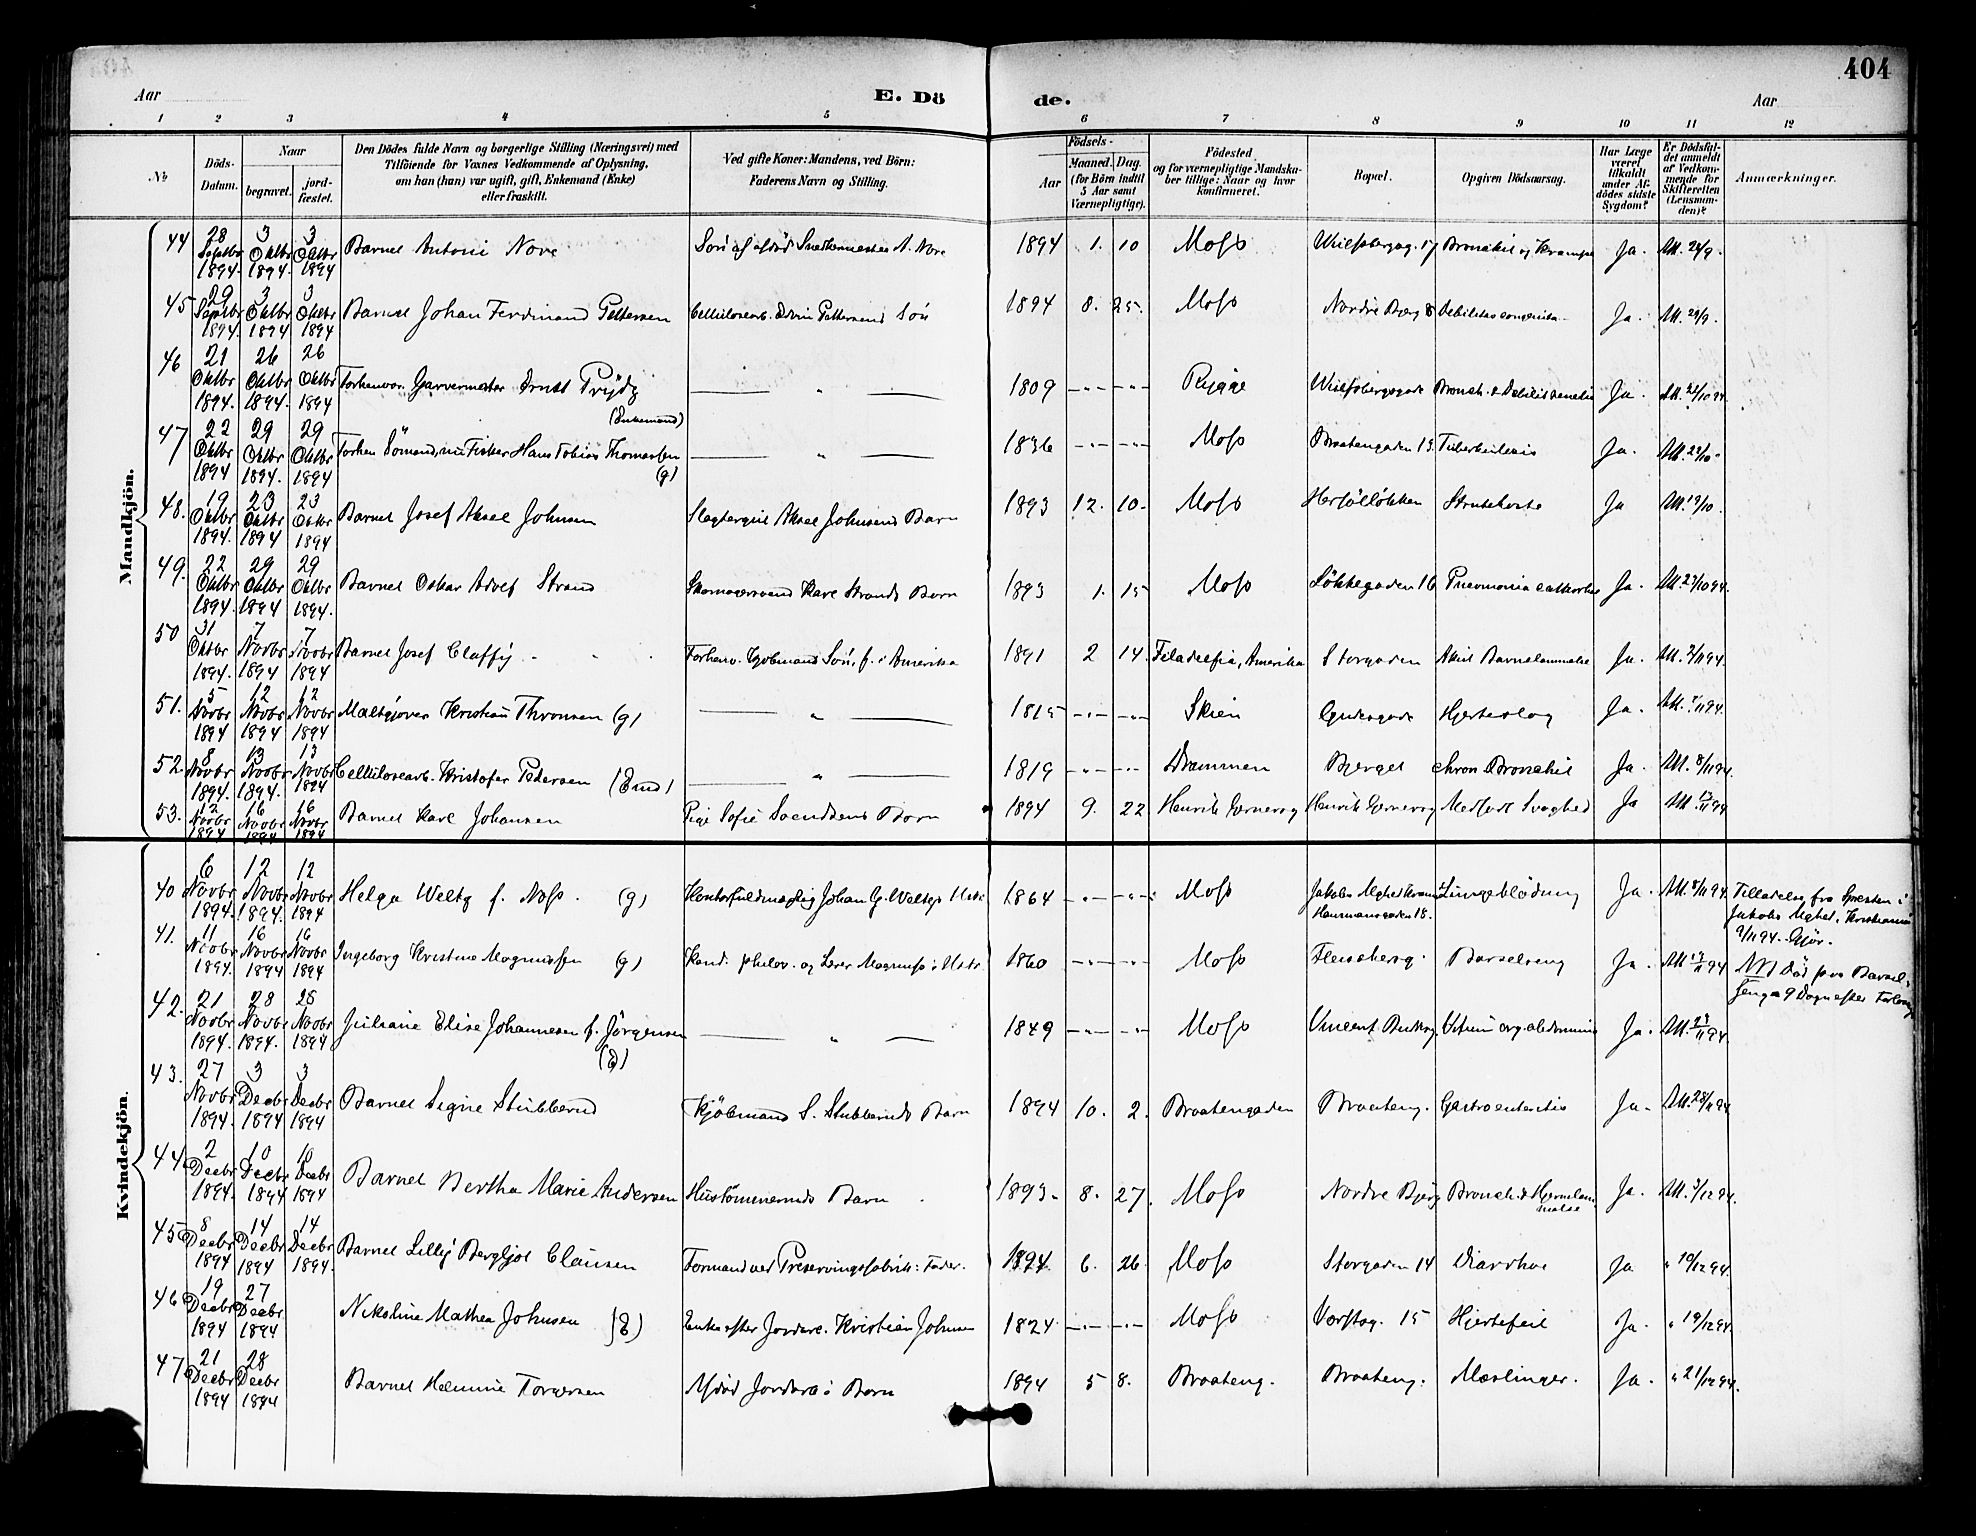 404
Aar
E. Dö
de.
Aar
1 2 3 4 5 6 7 8 9 10 11 12
No
Döds-
Datum.
Naar
begravet.
jord-
fæstet.
Den Dödes fulde Navn og borgerlige Stilling (Næringsvei) med
Tilföiende for Voxnes Vedkommende af Oplysning,
om han (hun) var ugift, gift, Enkemand (Enke)
eller fraskilt.
Ved gifte Koner: Mandens, ved Börn:
Faderens Navn og Stilling.
Födsels-
Aar
Maaned. Dag.
(for Börn indtil
5 Aar samt
Værnepligtige).
Födested
og for værnepligtige Mandska-
ber tillige: Naar og hvor
konfirmeret.
Bopæl.
Opgiven Dödsaarsag.
Har Læge
været
tilkaldt
under Af-
dödes sidste
Sygdom?
Er Dödsfal-
det anmeldt
af Vedkom-
mende for
Skifteretten
(Lensman-
den)?
Anmærkninger.
Mandkjön.
44 28 Septbr 1894. 3 Oktbr 1894. 3 Oktbr 1894 Barnet Antoni Nore Sön af afdöd Snedkermester A. Nore 1894 1. 10 Moss 17 Bronchit og Krampe Ja. Att. 29/9.
45 29 Septbr 1894. 3 Oktbr 1894 3 Oktbr 1894 Barnet Johan Ferdinand Pettersen Cellulosearb. Edvin Pettersens Sön 1894 8. 25. Moss Nordre Bjerg 8 Debilitas congenita Ja. Att. 29/9.
46 21 Oktbr 1894. 26 Oktbr 1894. 26 Oktbr 1894 Forhenvær. Garvermester Ernst Prydz (Enkemand) 1809 Rygge Wulfsbergsgade Bronch. & Debilit. senilis Ja.
47 22 Oktbr 1894 29 Oktbr 1894. 29 Oktbr 1894 Forhen Sömand, nu Fisker Hans Tobias Thomassen (g) 1836 Moss Braatengaden 13. Tuberkulosis Ja. Att. 22/10.
48. 19 Oktbr 1894. 23 Oktbr 1894 23 Oktbr 1894 Barnet Josef Aksel Johnsen Aksel Johnsens Barn 1893 12. 10. Moss Strubehoste Ja Att. 19/10.
49. 22 Oktbr 1894. 29 Oktbr 1894 29 Oktbr 1894. Barnet Oskar Adolf Strand Skomagersvend Karl Strands Barn 1893 1. 15 Moss Lökkegaden 16 Pneumonia Ja.
50 31 Oktbr 1894. 7 Novbr 1894 7 Novbr 1894 Barnet Josef Claffy Forhenv. Kjöbmands Sön, f. i Amerika 1891 2 14. Filadelfia, Amerika Storgaden Akut Ja. Att. 2/11 94.
51. 5 Novbr 1894 12 Novbr 1894 12 Novbr 1894 Kristian Thronsen (g) 1815 Skien Gudesgade Hjerteslag Ja. Att. 7/11 94.
52. 8 Novbr 1894. 13 Novbr 1894. 13 Novbr 1894 Cellulosearb. Kristofer Pedersen (Enk) 1819 Drammen Bjerget Chron. Bronchit Ja. Att. 8/11 94.
53. 12 Novbr 1894 16 Novbr 1894 16 Novbr 1894 Barnet Karl Johansen Pige Sofie Svendsens Barn 1894 9. 22 Henrik Gernersg Henrik Gernersg Medfödt Svaghed Ja
Kvindekjön.
40 6 Novbr 1894. 12 Novbr 1894. 12 Novbr 1894 Helga Weltz f. Ness. (g) Kontorfuldmægtig Johan G. Weltz's 1864 Moss Jakobs Lungeblödning Ja. Att. 8/11 94. Tilladelse fra Presten i
Jakobs Mghed. Kristiania
9/11 94.
41. 11 Novbr 1894. 16 Novbr 1894 16 Novbr 1894 Ingeborg Kristine Magnussen (g) Kand. philos. og Lærer 1860 Moss Fleischersg. Barselseng Ja. Död paa Barsel-
seng 9 Dögn efter
42. 21 Novbr 1894. 28 Novbr 1894. 28 Novbr 1894 Juliane Elise Johannesen f. Jörgensen (E) 1849 Moss Vitium org. abdominis Ja.
43. 27 Novbr 1894. 3 Decbr 1894 3 Decbr 1894 Barnet Signe Stubberud Kjöbmand S. Stubberuds Barn 1894 10. 2. Braatengaden Braateng. Gastroenteritis Ja. Att. 28/11 94.
44. 2 Decbr 1894. 10 Decbr 1894 10 Decbr 1894 Barnet Bertha Marie Andersen Hustömmermands Barn 1893. 8. 27. Moss Nordre Bjerg Bronch. & Ja. Att. 3/12 94.
45 8 Decbr 1894 14 Decbr 1894 14 Decbr 1894. Barnet Lilly Bergljot Clausen Formand ved Preservingsfabrik: Fader. 1894. 6. 26. Moss Storgaden 14 Diarrhoe Ja " 10/12 94.
46 19 Decbr 1894 27 Decbr 1894 Nikoline Mathea Johnsen (E) Enke efter Jordarb. Kristian Johnsen 1824 Moss 15 Hjertefeil Ja. " 19/12 94.
47 21 Decbr 1894 28 Decbr 1894 Barnet Helmine Torgersen Afdöd Jordarb's Barn 1894 5 8. Braateng. Braateng. Mæslinger. Ja. " 21/12 94.